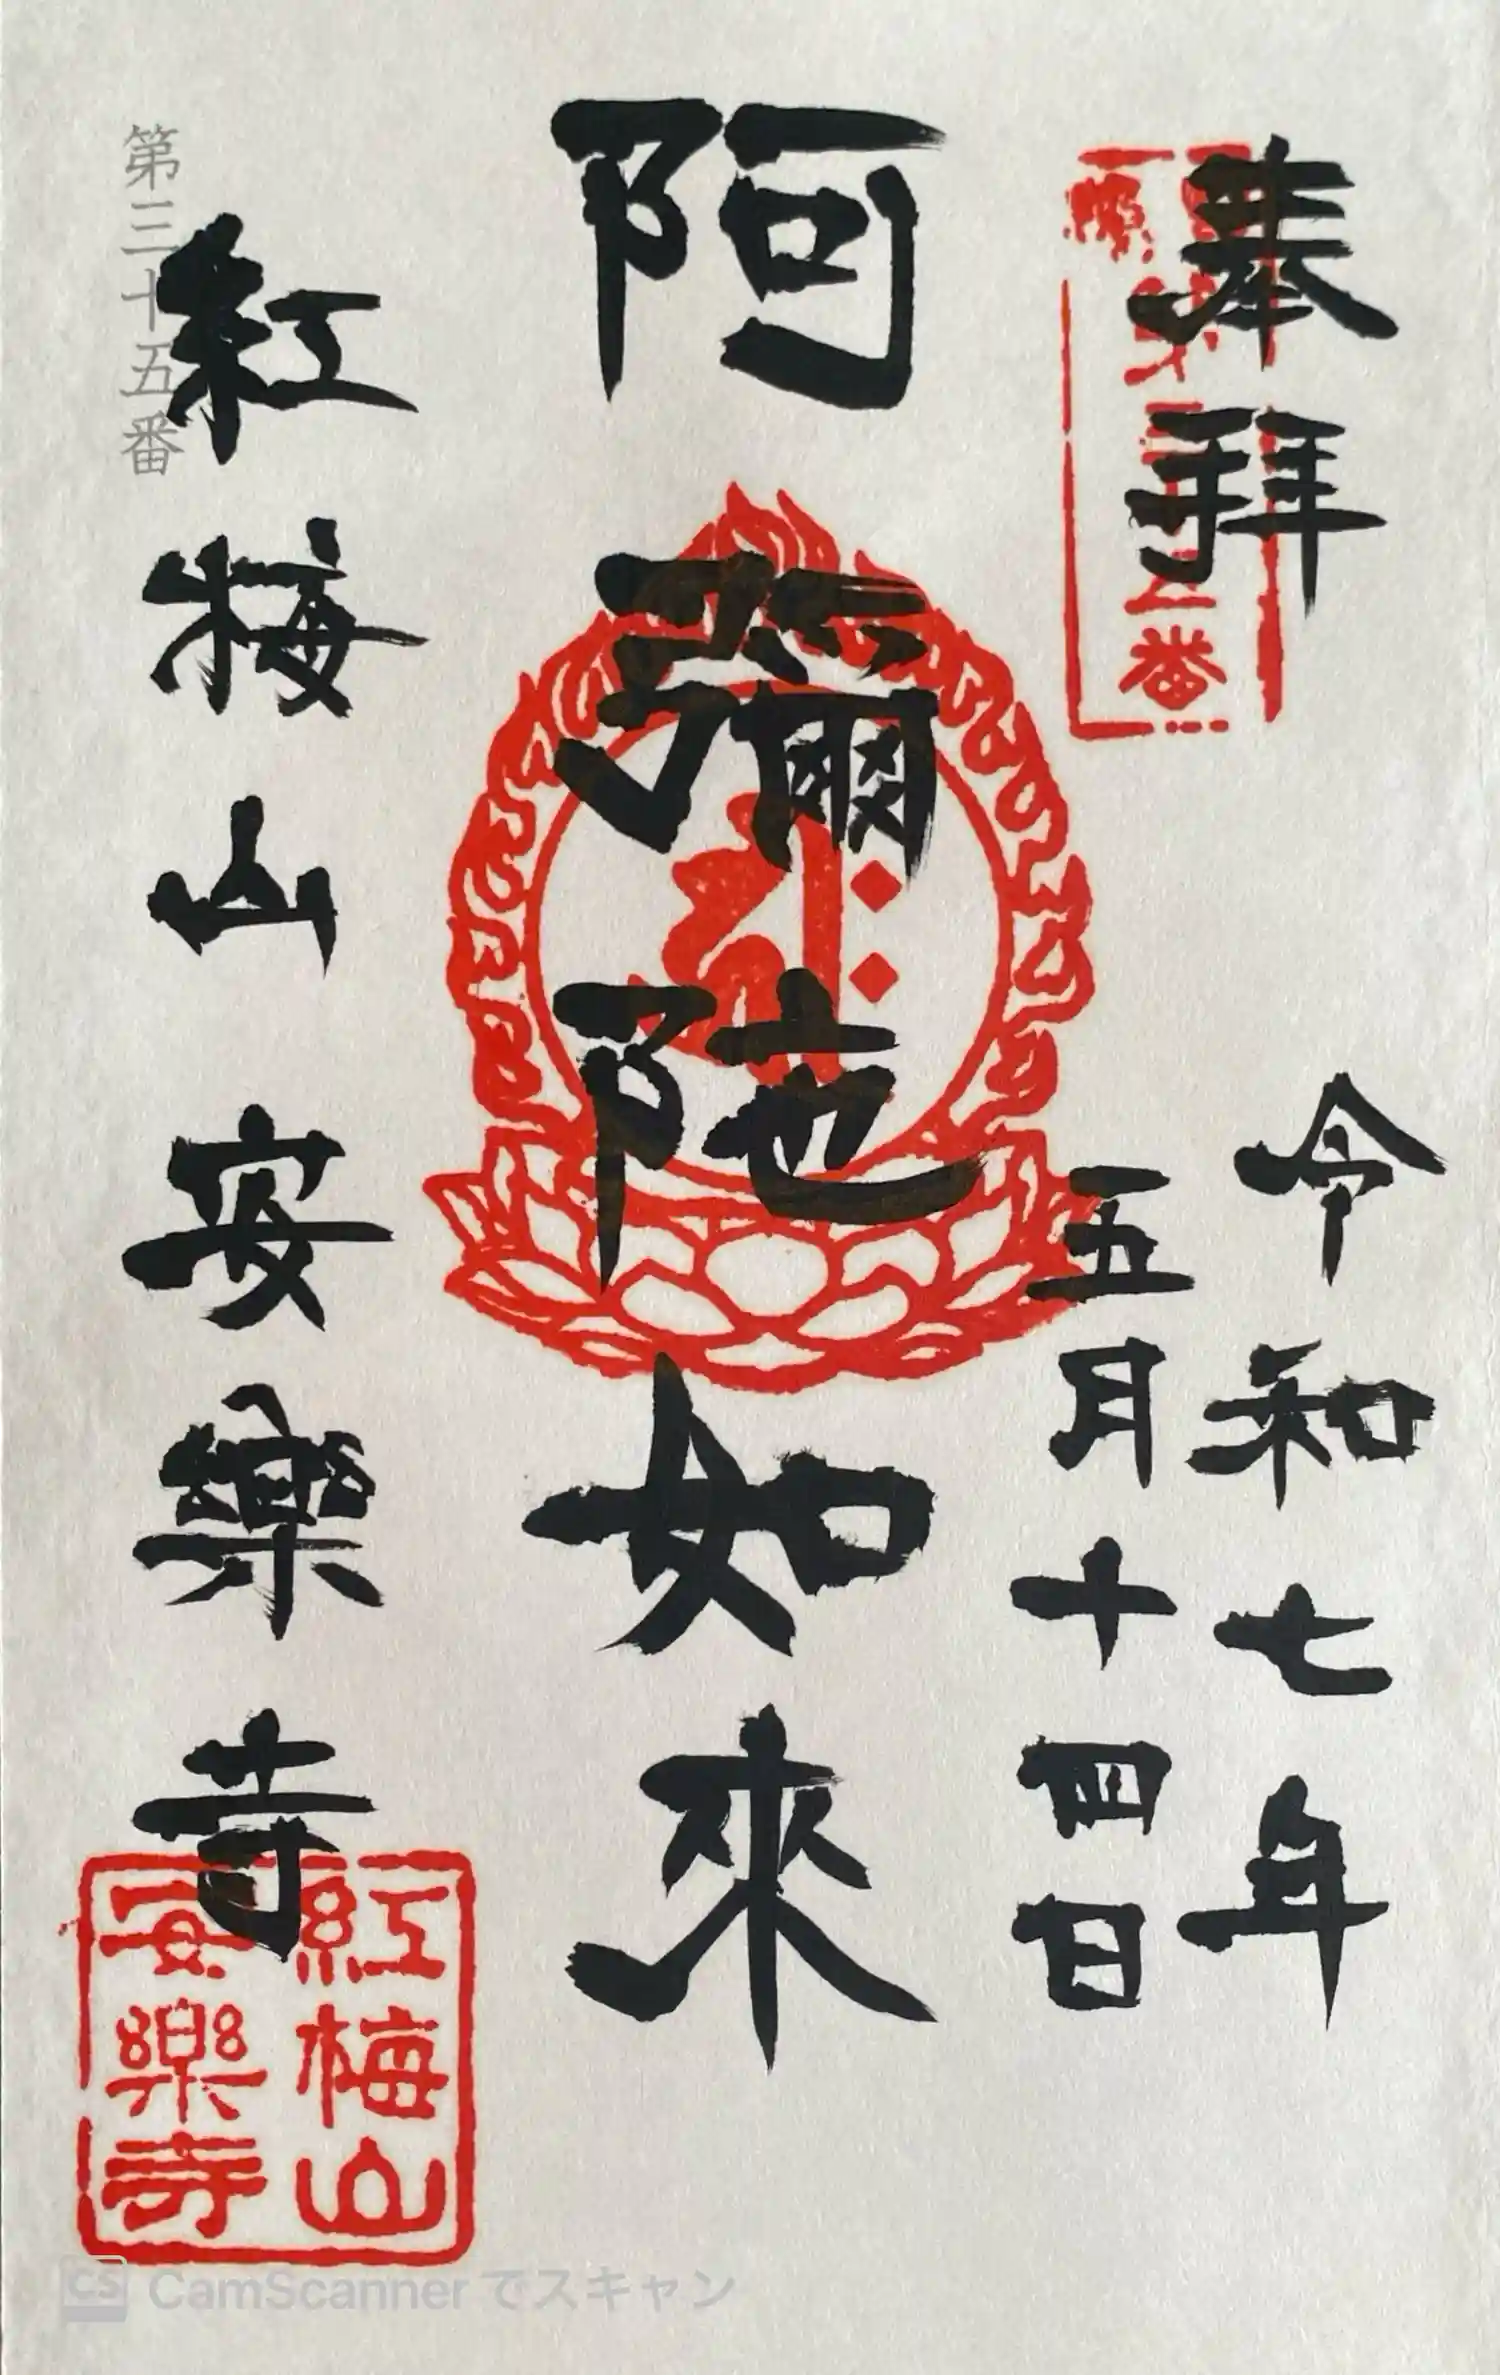 奉拜
令和七年
五月十四日
阿彌陀如來
紅梅山安樂寺
第三十五番
紅梅山
安樂寺
CS CamScanner でスキャン